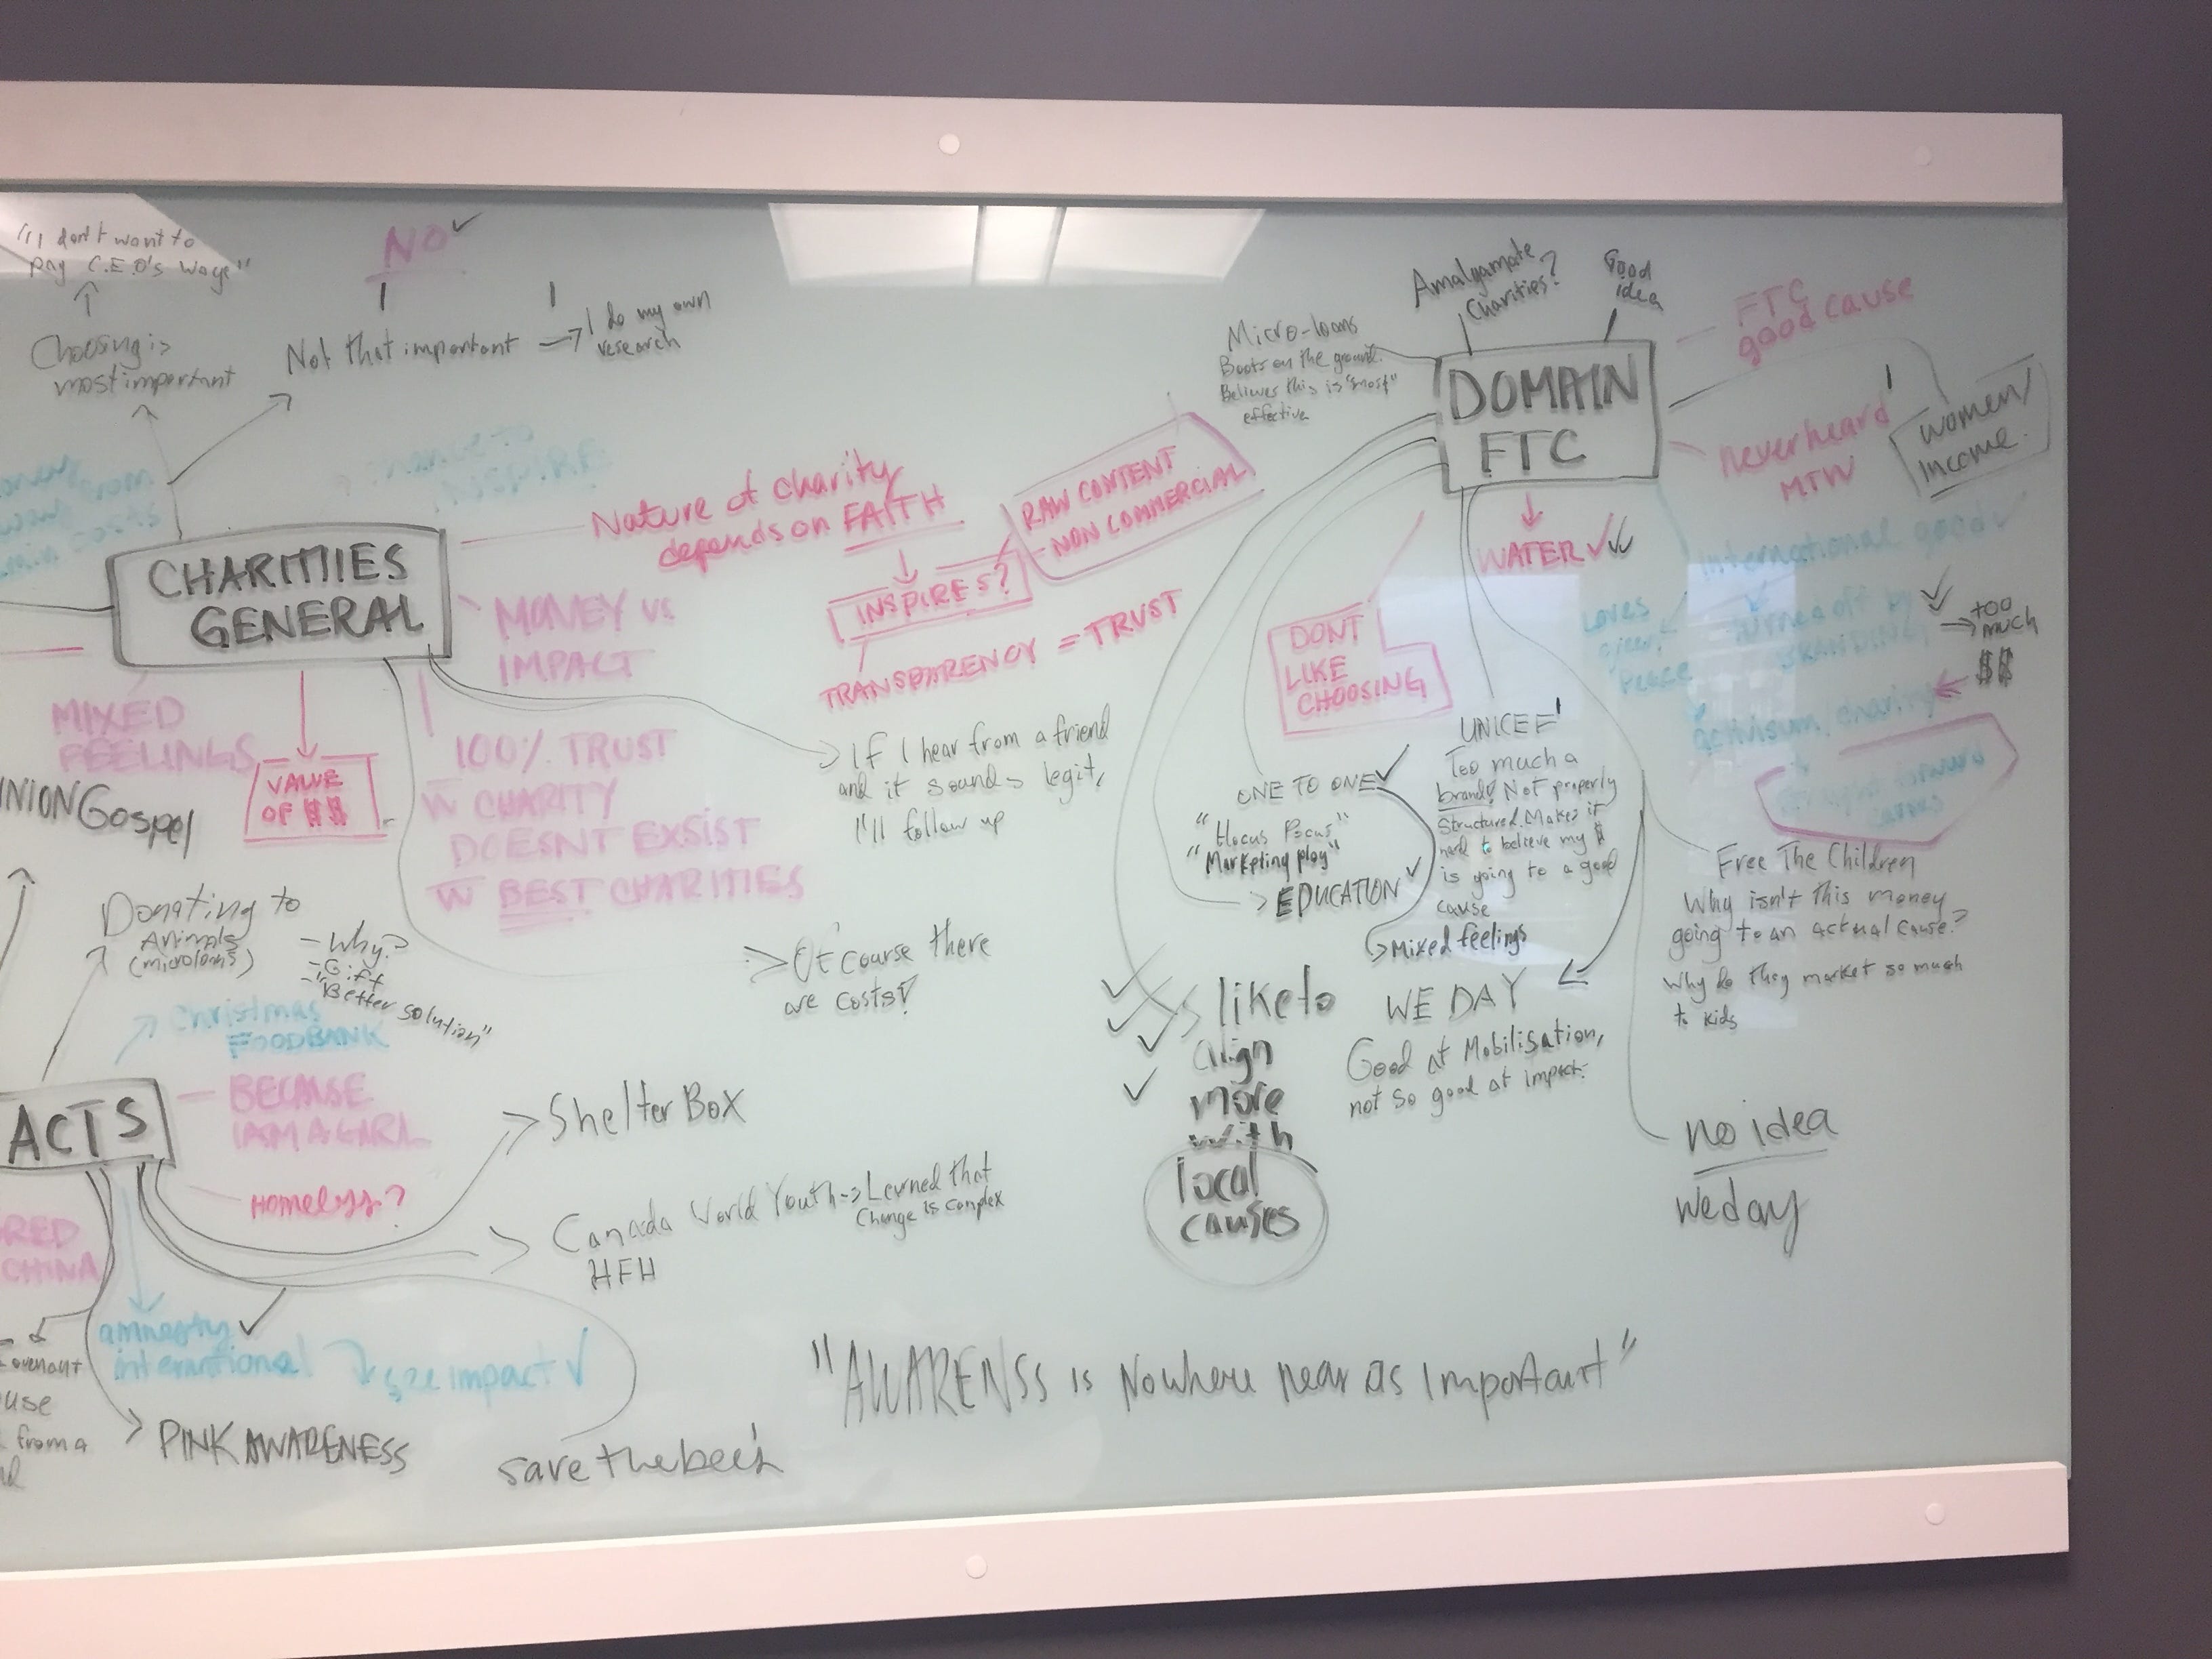 "I don't want to
pay C.E.O's wage"
Choosing is
most important
NO
Not that important
I do my own
research
CHARITIIES
GENERAL
Nature of charity
depends on FAITH
INSPIRES?
RAW CONTENT
NON COMMERCIAL
TRANSPARENCY = TRUST
MONEY VS
IMPACT
MIXED
FEELINGS
VALUE
OF $$
100% TRUST
W CHARITY
DOESNT EXSIST
W BEST CHARITIES
If I hear from a friend
and it sounds legit,
I'll follow up
Of course there
are costs!
NION Gospel
Donating to
Animals
(microloans)
- Why?
- Gift
- "Better solution"
Christmas
FOODBANK
ACTS
BECAUSE
IAM A GIRL
Homelss?
RED
CHINA
Shelter Box
Canada World Youth -> Lerned that
Change is complex
HFH
amnesty
international
see impact
ovenant
use
from a
PINK AWARENESS
save the bee's
Micro-loans
Boots on the ground.
Believes this is "most"
effective
Amalgamate
Charities?
Good
idea
DOMAIN
FTC
FTC
good cause
never heard
MTW
Women/
Income.
WATER
DONT
LIKE
CHOOSING
International good
Loves
Peace
turned off by
BRANDING
too
much
$$
activisum, charity
ONE TO ONE
"Hocus Pocus"
"Marketing ploy"
EDUCATION
Mixed feelings
UNICEF
Too much a
brand! Not properly
Structured. Makes it
hard to believe my $
is going to a good
cause
Free The Children
Why isn't this money
going to an actual cause?
Why do they market so much
to kids
like to
align
more
with
local
causes
WE DAY
Good at Mobilisation,
not so good at impact.
no idea
we day
"AWARENSS is Nowhere near as Important"